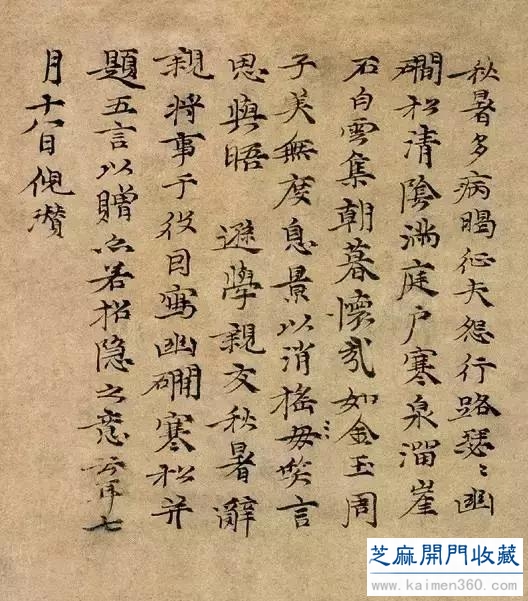 秋暑多病暍征夫怨行路瑟〻幽
磵松清陰滿庭户寒泉溜崖
石白雲集朝暮懷哉如金玉周
子美無度息景以消搖毋笑言
思與晤 遜學親友秋暑辭
親將事于役因寫幽磵寒松并
題五言以贈亦若招隱之意云耳七
月十八日倪瓚
芝麻開門收藏
www.kaimen360.com